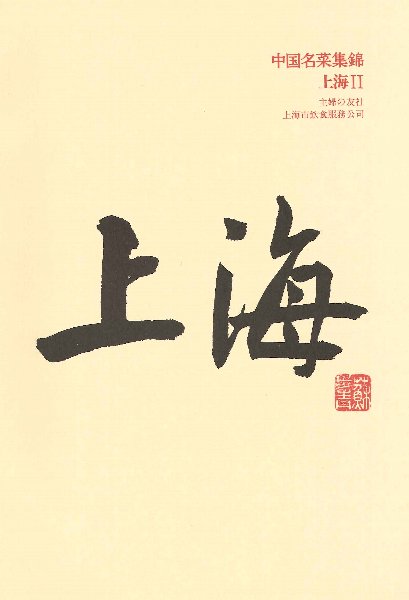 中国名菜集錦
上海II
主婦の友社
上海市飲食服務公司
上海